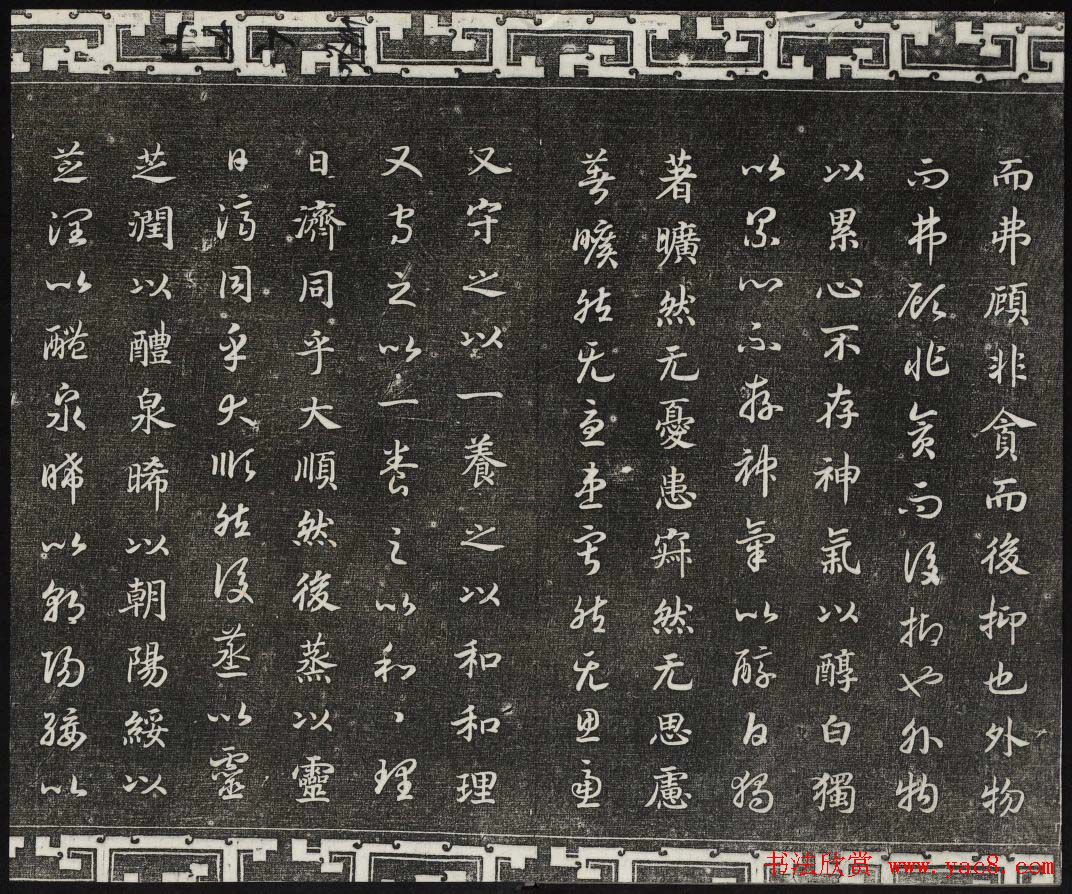 而弗顧非貪而後抑也外物
而弗顧非貪而後抑也外物
以累心不存神氣以醇白獨
以累心不存神氣以醇白獨
著曠然无憂患寂然无思慮
著曠然无憂患寂然无思慮
又守之以一養之以和和理
又守之以一養之以和〻理
日濟同乎大順然後蒸以靈
日濟同乎大順然後蒸以靈
芝潤以醴泉晞以朝陽綏以
芝潤以醴泉晞以朝陽綏以
书法欣赏 www.yac8.com